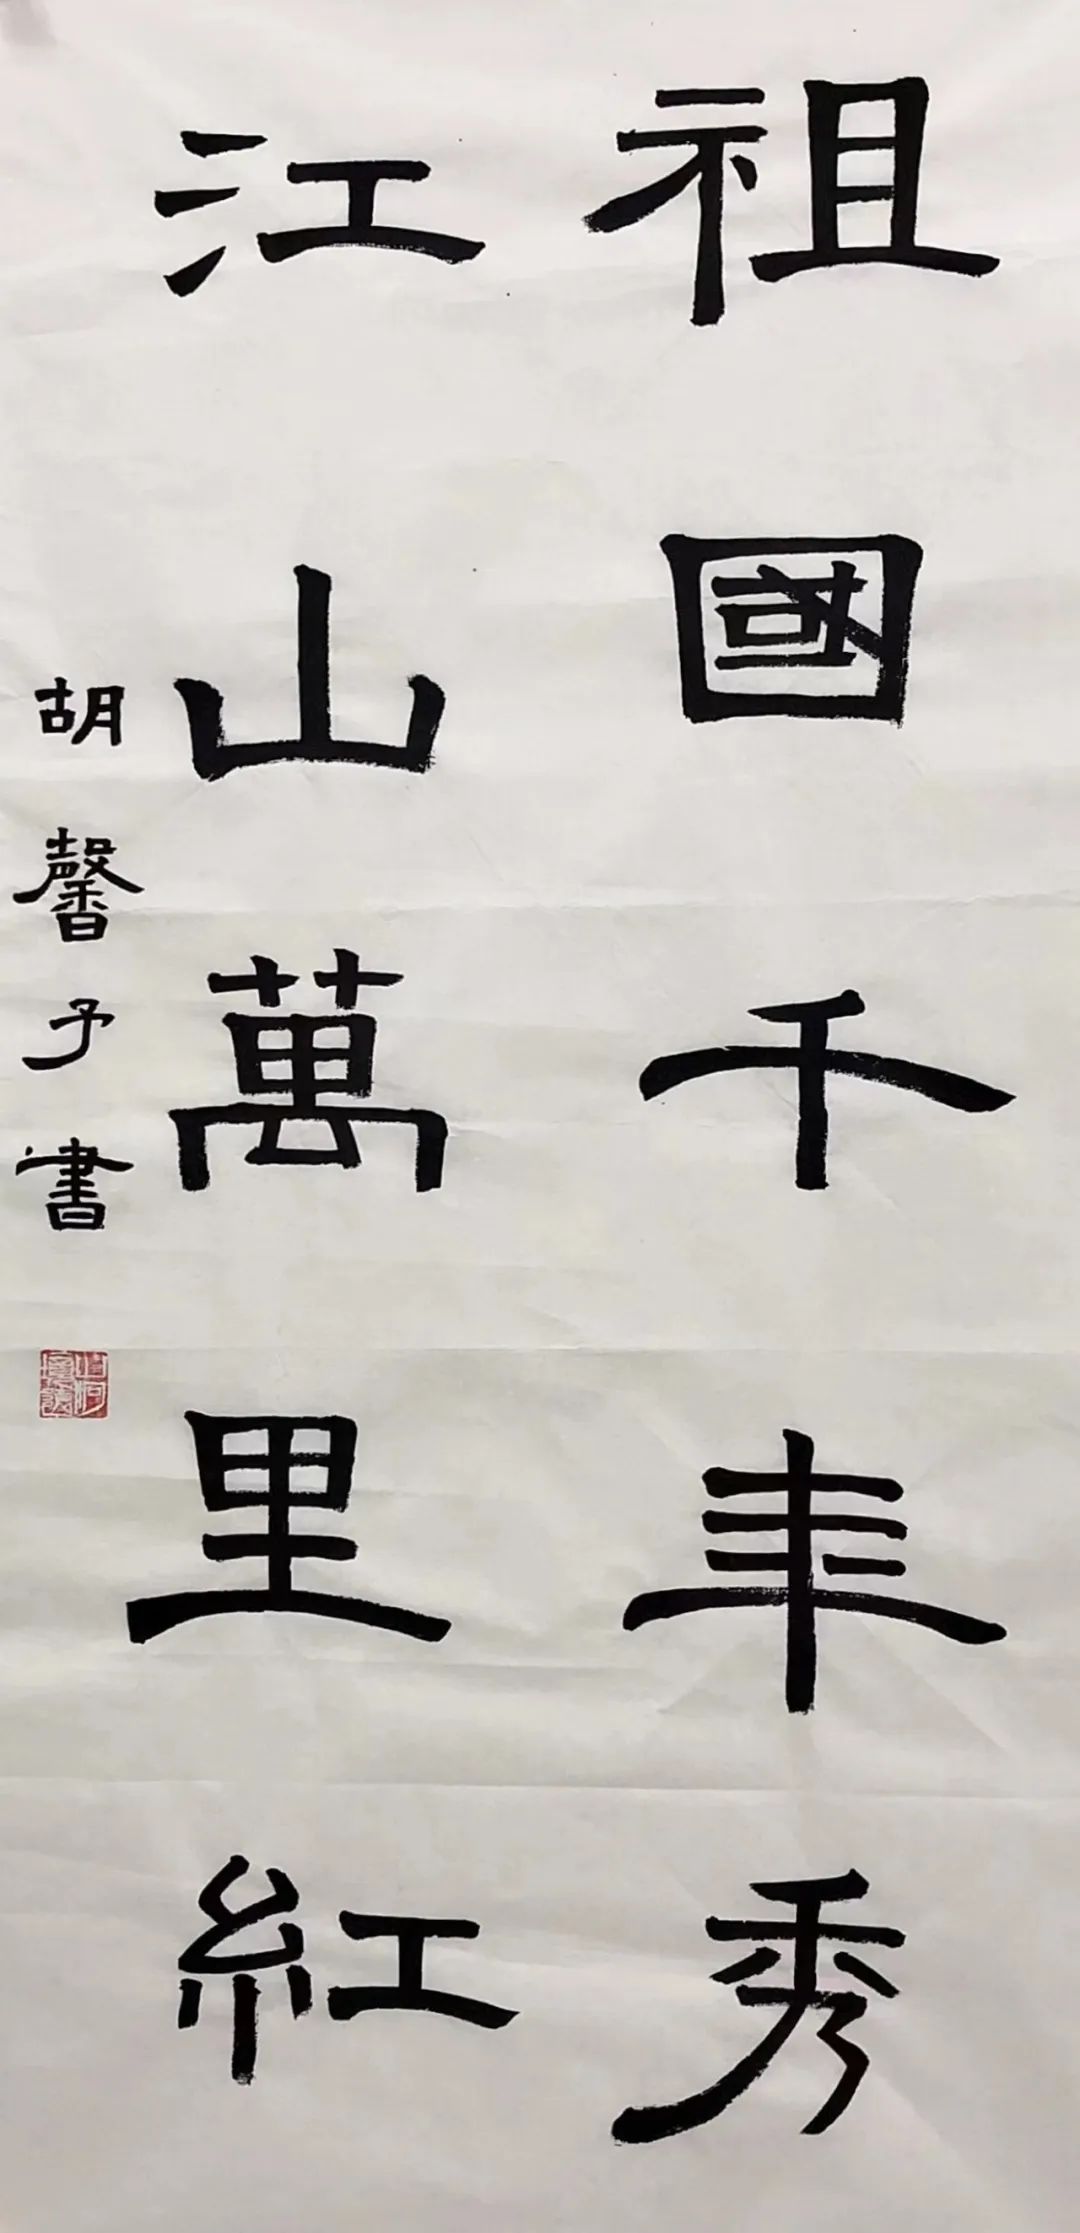 祖國千年秀
江山萬里紅
胡馨予書